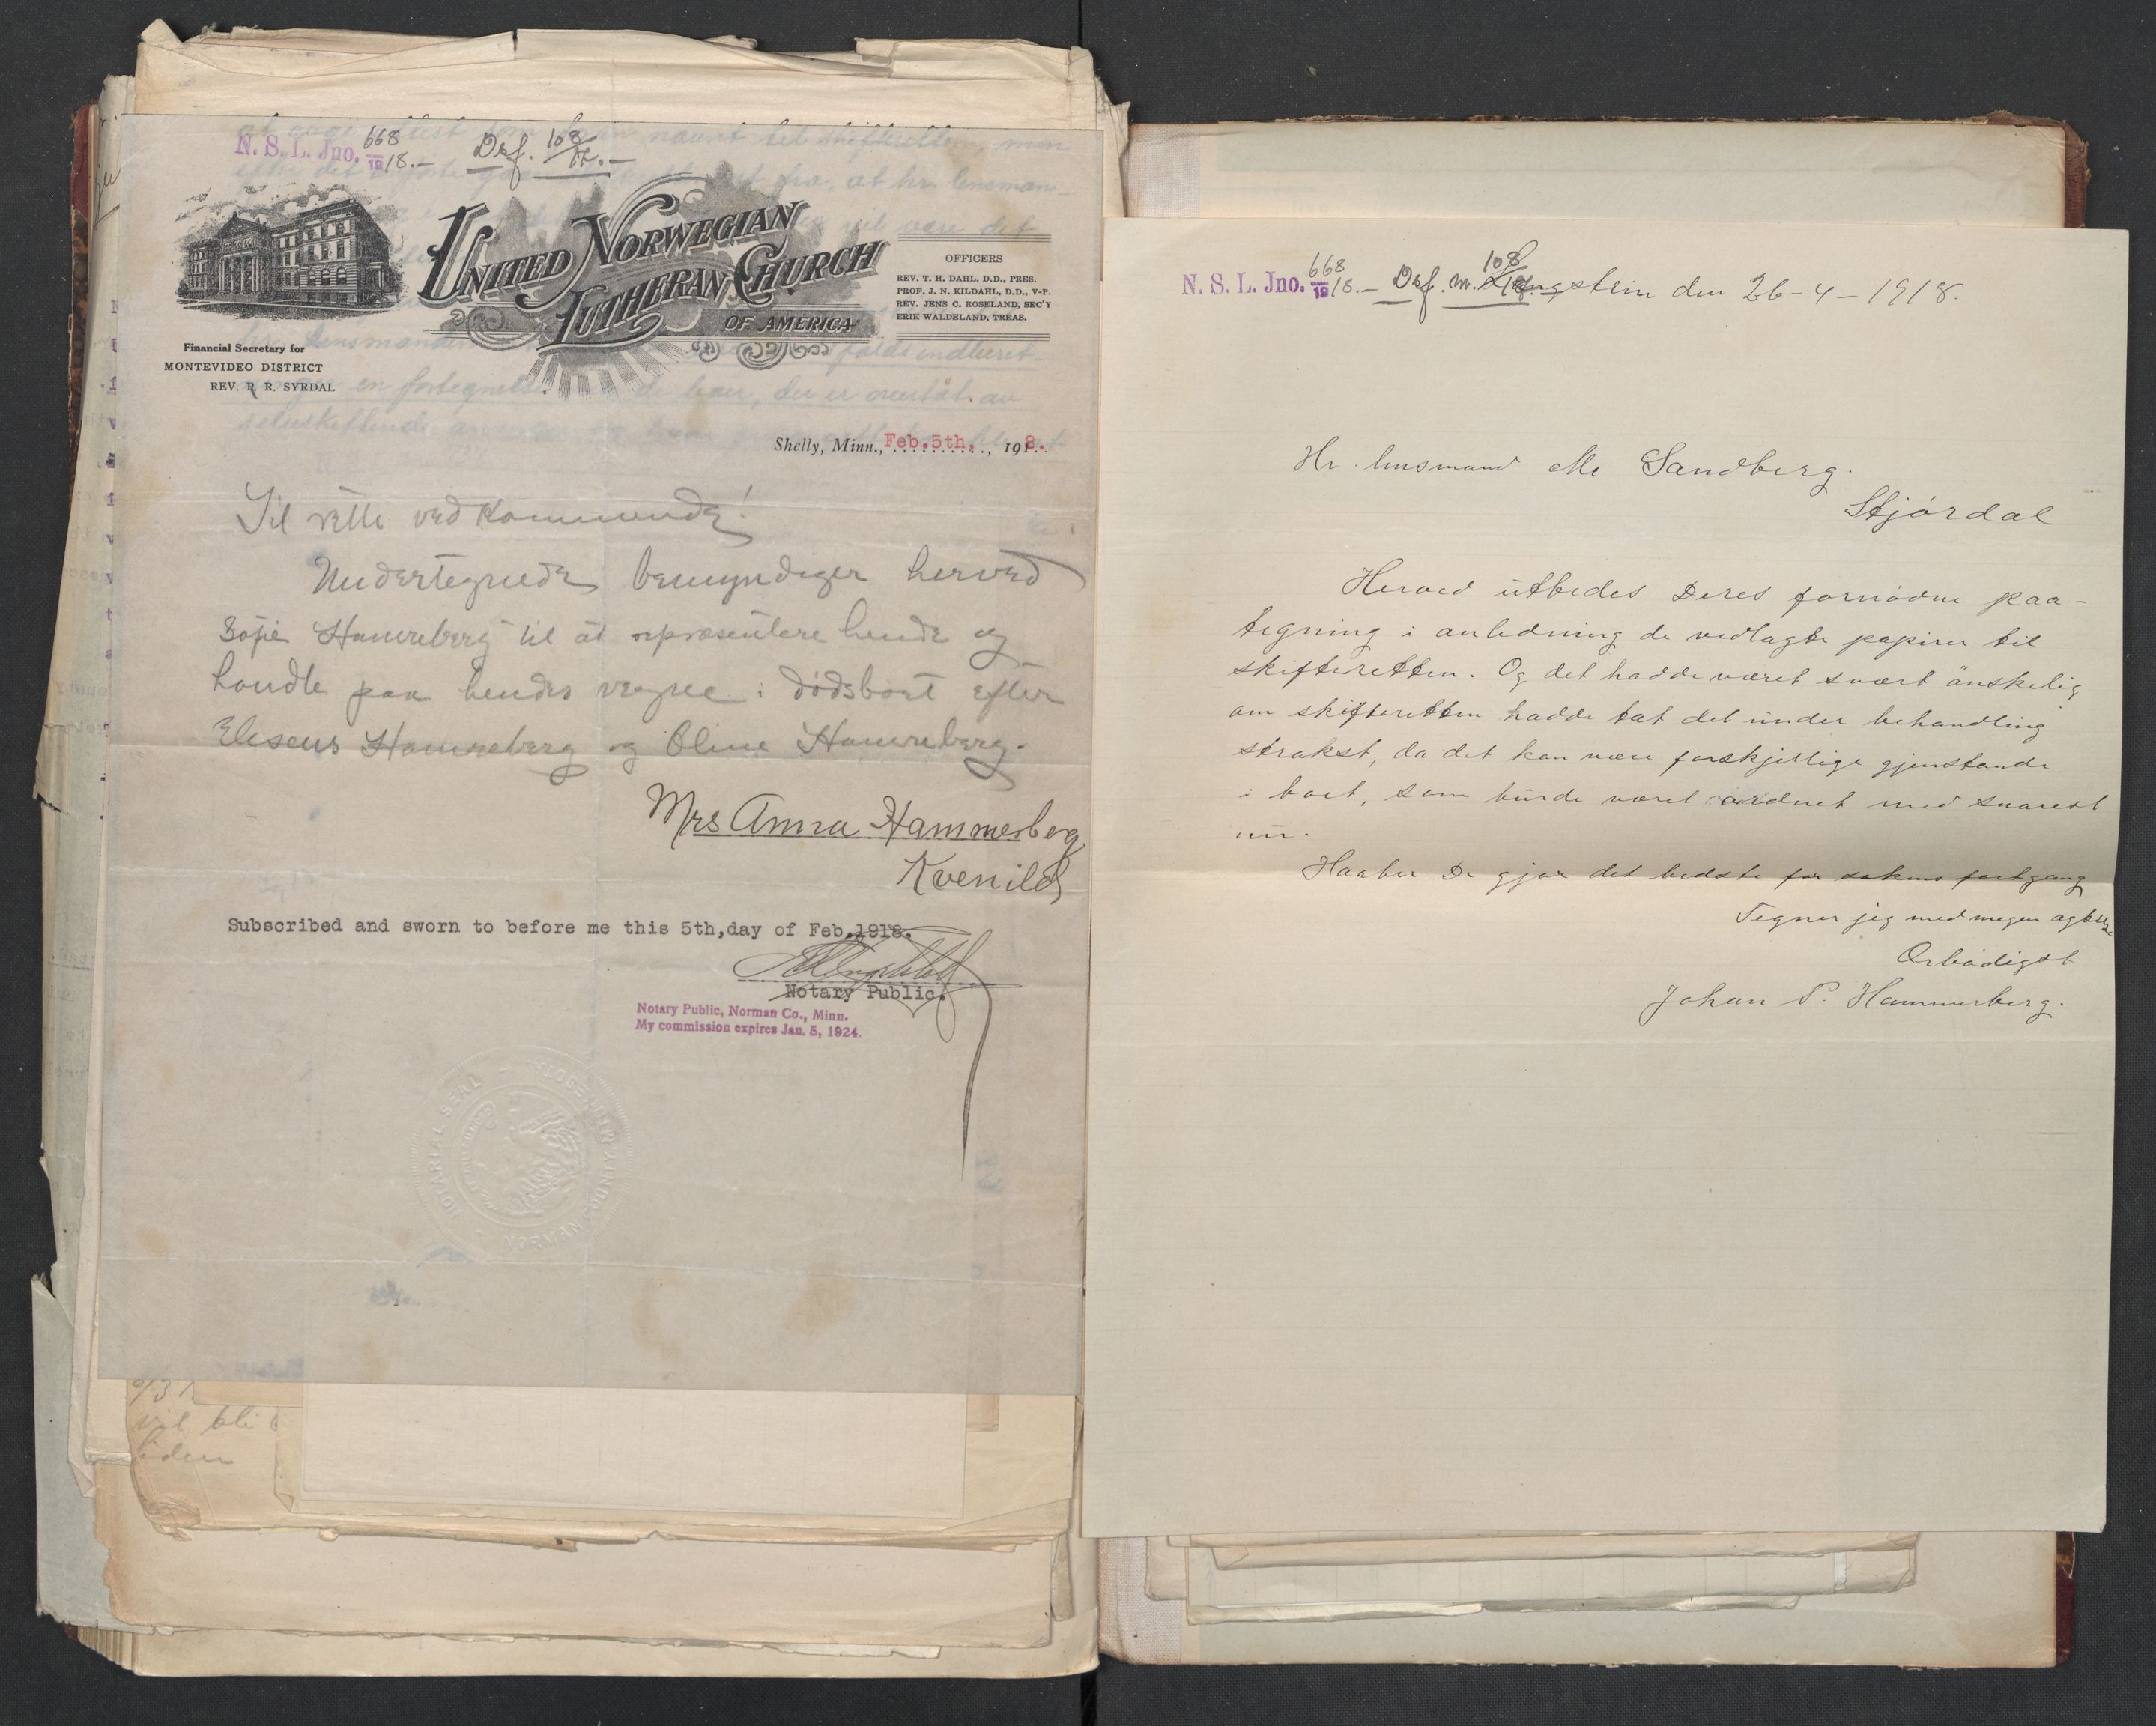 N. S. L. Jno. 668/1918.- Def. 108/17.-
UNITED NORWEGIAN
LUTHERAN CHURCH
OF AMERICA
OFFICERS
REV. T. H. DAHL, D.D., PRES.
PROF. J. N. KILDAHL, D.D., V-P.
REV. JENS C. ROSELAND, SEC'Y
ERIK WALDELAND, TREAS.
Financial Secretary for
MONTEVIDEO DISTRICT
REV. R. R. SYRDAL
Shelly, Minn., Feb.5th, 1918.
Til rette vedkommende!
Undertegnede bemyndiger herved
Sofie Hammerberg til at repræsentere hende og
handle paa hendes vegne i dødsboet efter
Eliseus Hammerberg og Oline Hammerberg.
Mrs Anna Hammerberg
Kvenild
Subscribed and sworn to before me this 5th,day of Feb.1918.
Notary Public.
Notary Public, Norman Co., Minn.
My commission expires Jan. 5, 1924.
NOTARIAL SEAL
NORMAN COUNTY MINN.
vil bli
N. S. L. Jno. 668/1918.- Def. 108/
Langstein den 26-4-1918.
Hr. lensmand M. Sandberg.
Stjørdal
Herved utbedes Deres fornødne paa-
tegning i anledning de vedlagte papirer til
skifteretten. Og det hadde været svært ønskelig
om skifteretten hadde tat det under behandling
strakst, da det kan være forskjellige gjenstande
i boet, som burde været ordnet med snarest
nu.
Haaber De gjør det bedste for sakens fortgang
Tegner jeg med megen agtelse
Ærbødigst
Johan P. Hammerberg.